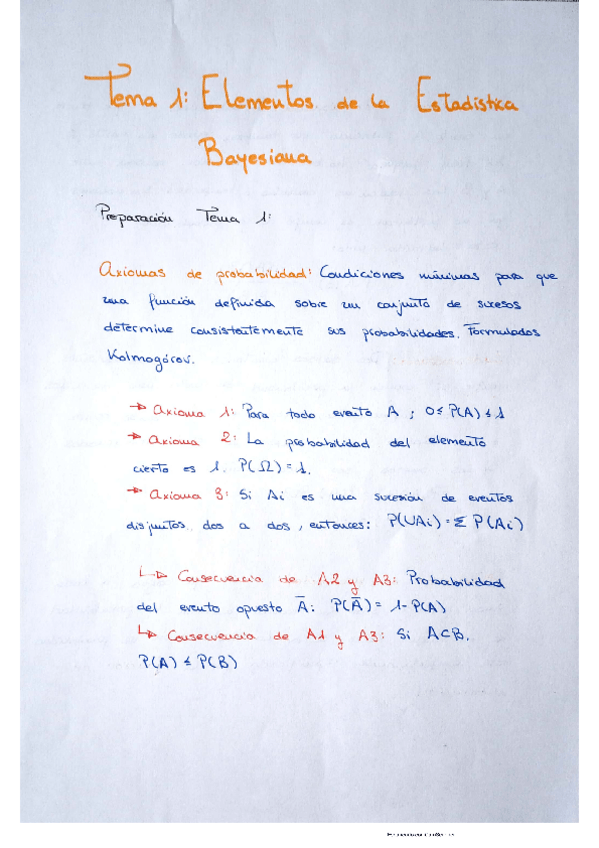 Tema 1: Elementos de la Estadística
Bayesiana
Preparación Tema 1:
Axiomas de probabilidad: Condiciones mínimas para que
una función definida sobre un conjunto de sucesos
determine consistentemente sus probabilidades. Formulados
Kolmogórov.
→ Axioma 1: Para todo evento A ; 0≤P(A)≤1
→ Axioma 2: La probabilidad del elemento
cierto es 1. P(Ω)=1.
→ Axioma 3: Si Ai es una sucesión de eventos
disjuntos dos a dos, entonces: P(UAi)=Σ P(Ai)
↳ Consecuencia de A2 y A3: Probabilidad
del evento opuesto Ā: P(Ā)= 1-P(A)
↳ Consecuencia de A1 y A3: Si A⊂B,
P(A) ≤ P(B)